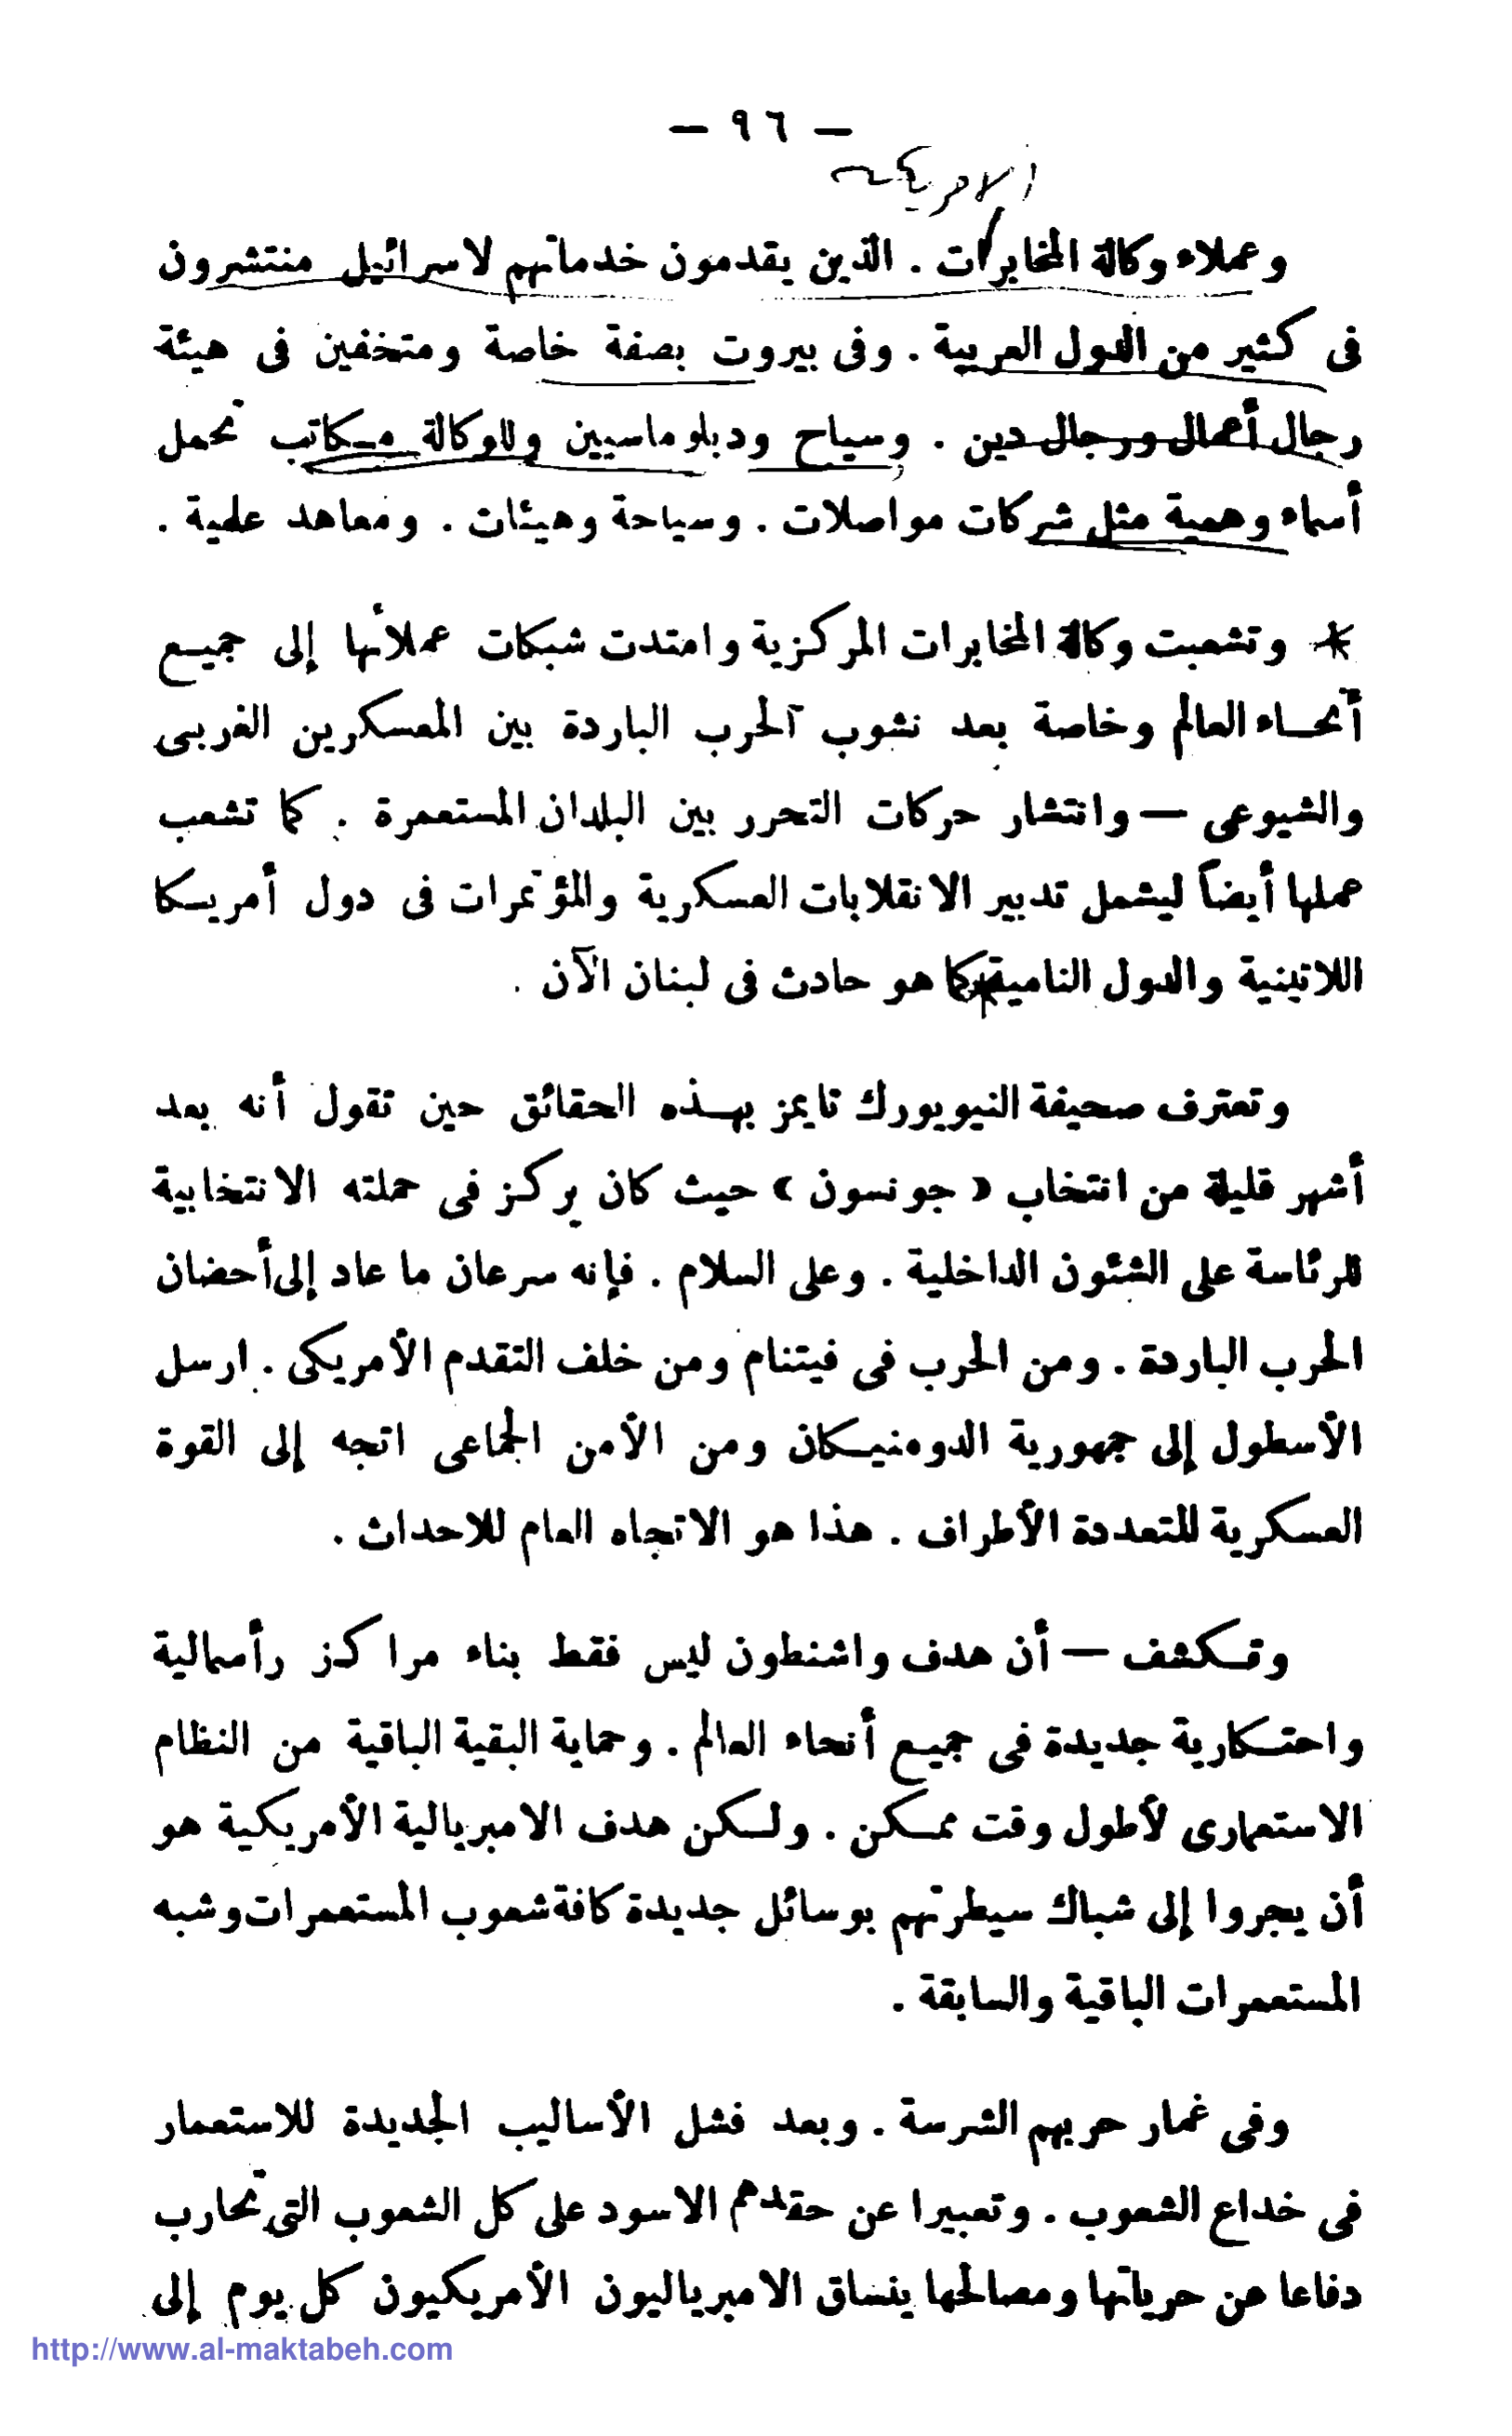 — ٩٦ —
الامريكية
وعملاء وكالة المخابرات . الذين يقدمون خدماتهم لاسرائيل منتشرون
فى كثير من الدول العربية . وفى بيروت بصفة خاصة ومتخفين فى هيئة
رجال أعمال ورجال دين . وسياح ودبلوماسيين وللوكالة مكاتب تحمل
أسماء وهمية مثل شركات مواصلات . وسياحة وهيئات . ومعاهد علمية .
* وتشعبت وكالة المخابرات المركزية وامتدت شبكات عملائها إلى جميع
أنحاء العالم وخاصة بعد نشوب الحرب الباردة بين المعسكرين الغربى
والشيوعى — وانتشار حركات التحرر بين البلدان المستعمرة . كما تشعب
عملها أيضاً ليشمل تدبير الانقلابات العسكرية والمؤتمرات فى دول أمريكا
اللاتينية والدول النامية كما هو حادث فى لبنان الآن .
وتعترف صحيفة النيويورك تايمز بهذه الحقائق حين تقول أنه بعد
أشهر قليلة من انتخاب « جونسون » حيث كان يركز فى حملته الانتخابية
للرئاسة على الشئون الداخلية . وعلى السلام . فإنه سرعان ما عاد إلى أحضان
الحرب الباردة . ومن الحرب فى فيتنام ومن خلف التقدم الأمريكى . ارسل
الأسطول إلى جمهورية الدومنيكان ومن الأمن الجماعى اتجه إلى القوة
العسكرية المتعددة الأطراف . هذا هو الاتجاه العام للاحداث .
وتكشف — أن هدف واشنطون ليس فقط بناء مراكز رأسمالية
واحتكارية جديدة فى جميع أنحاء العالم . وحماية البقية الباقية من النظام
الاستعمارى لأطول وقت ممكن . ولكن هدف الامبريالية الأمريكية هو
أن يجروا إلى شباك سيطرتهم بوسائل جديدة كافة شعوب المستعمرات وشبه
المستعمرات الباقية والسابقة .
وفى غمار حربهم الشرسة . وبعد فشل الأساليب الجديدة للاستعمار
فى خداع الشعوب . وتعبيرا عن حقدهم الاسود على كل الشعوب التى تحارب
دفاعا عن حرياتها ومصالحها ينساق الامبرياليون الأمريكيون كل يوم إلى
http://www.al-maktabeh.com